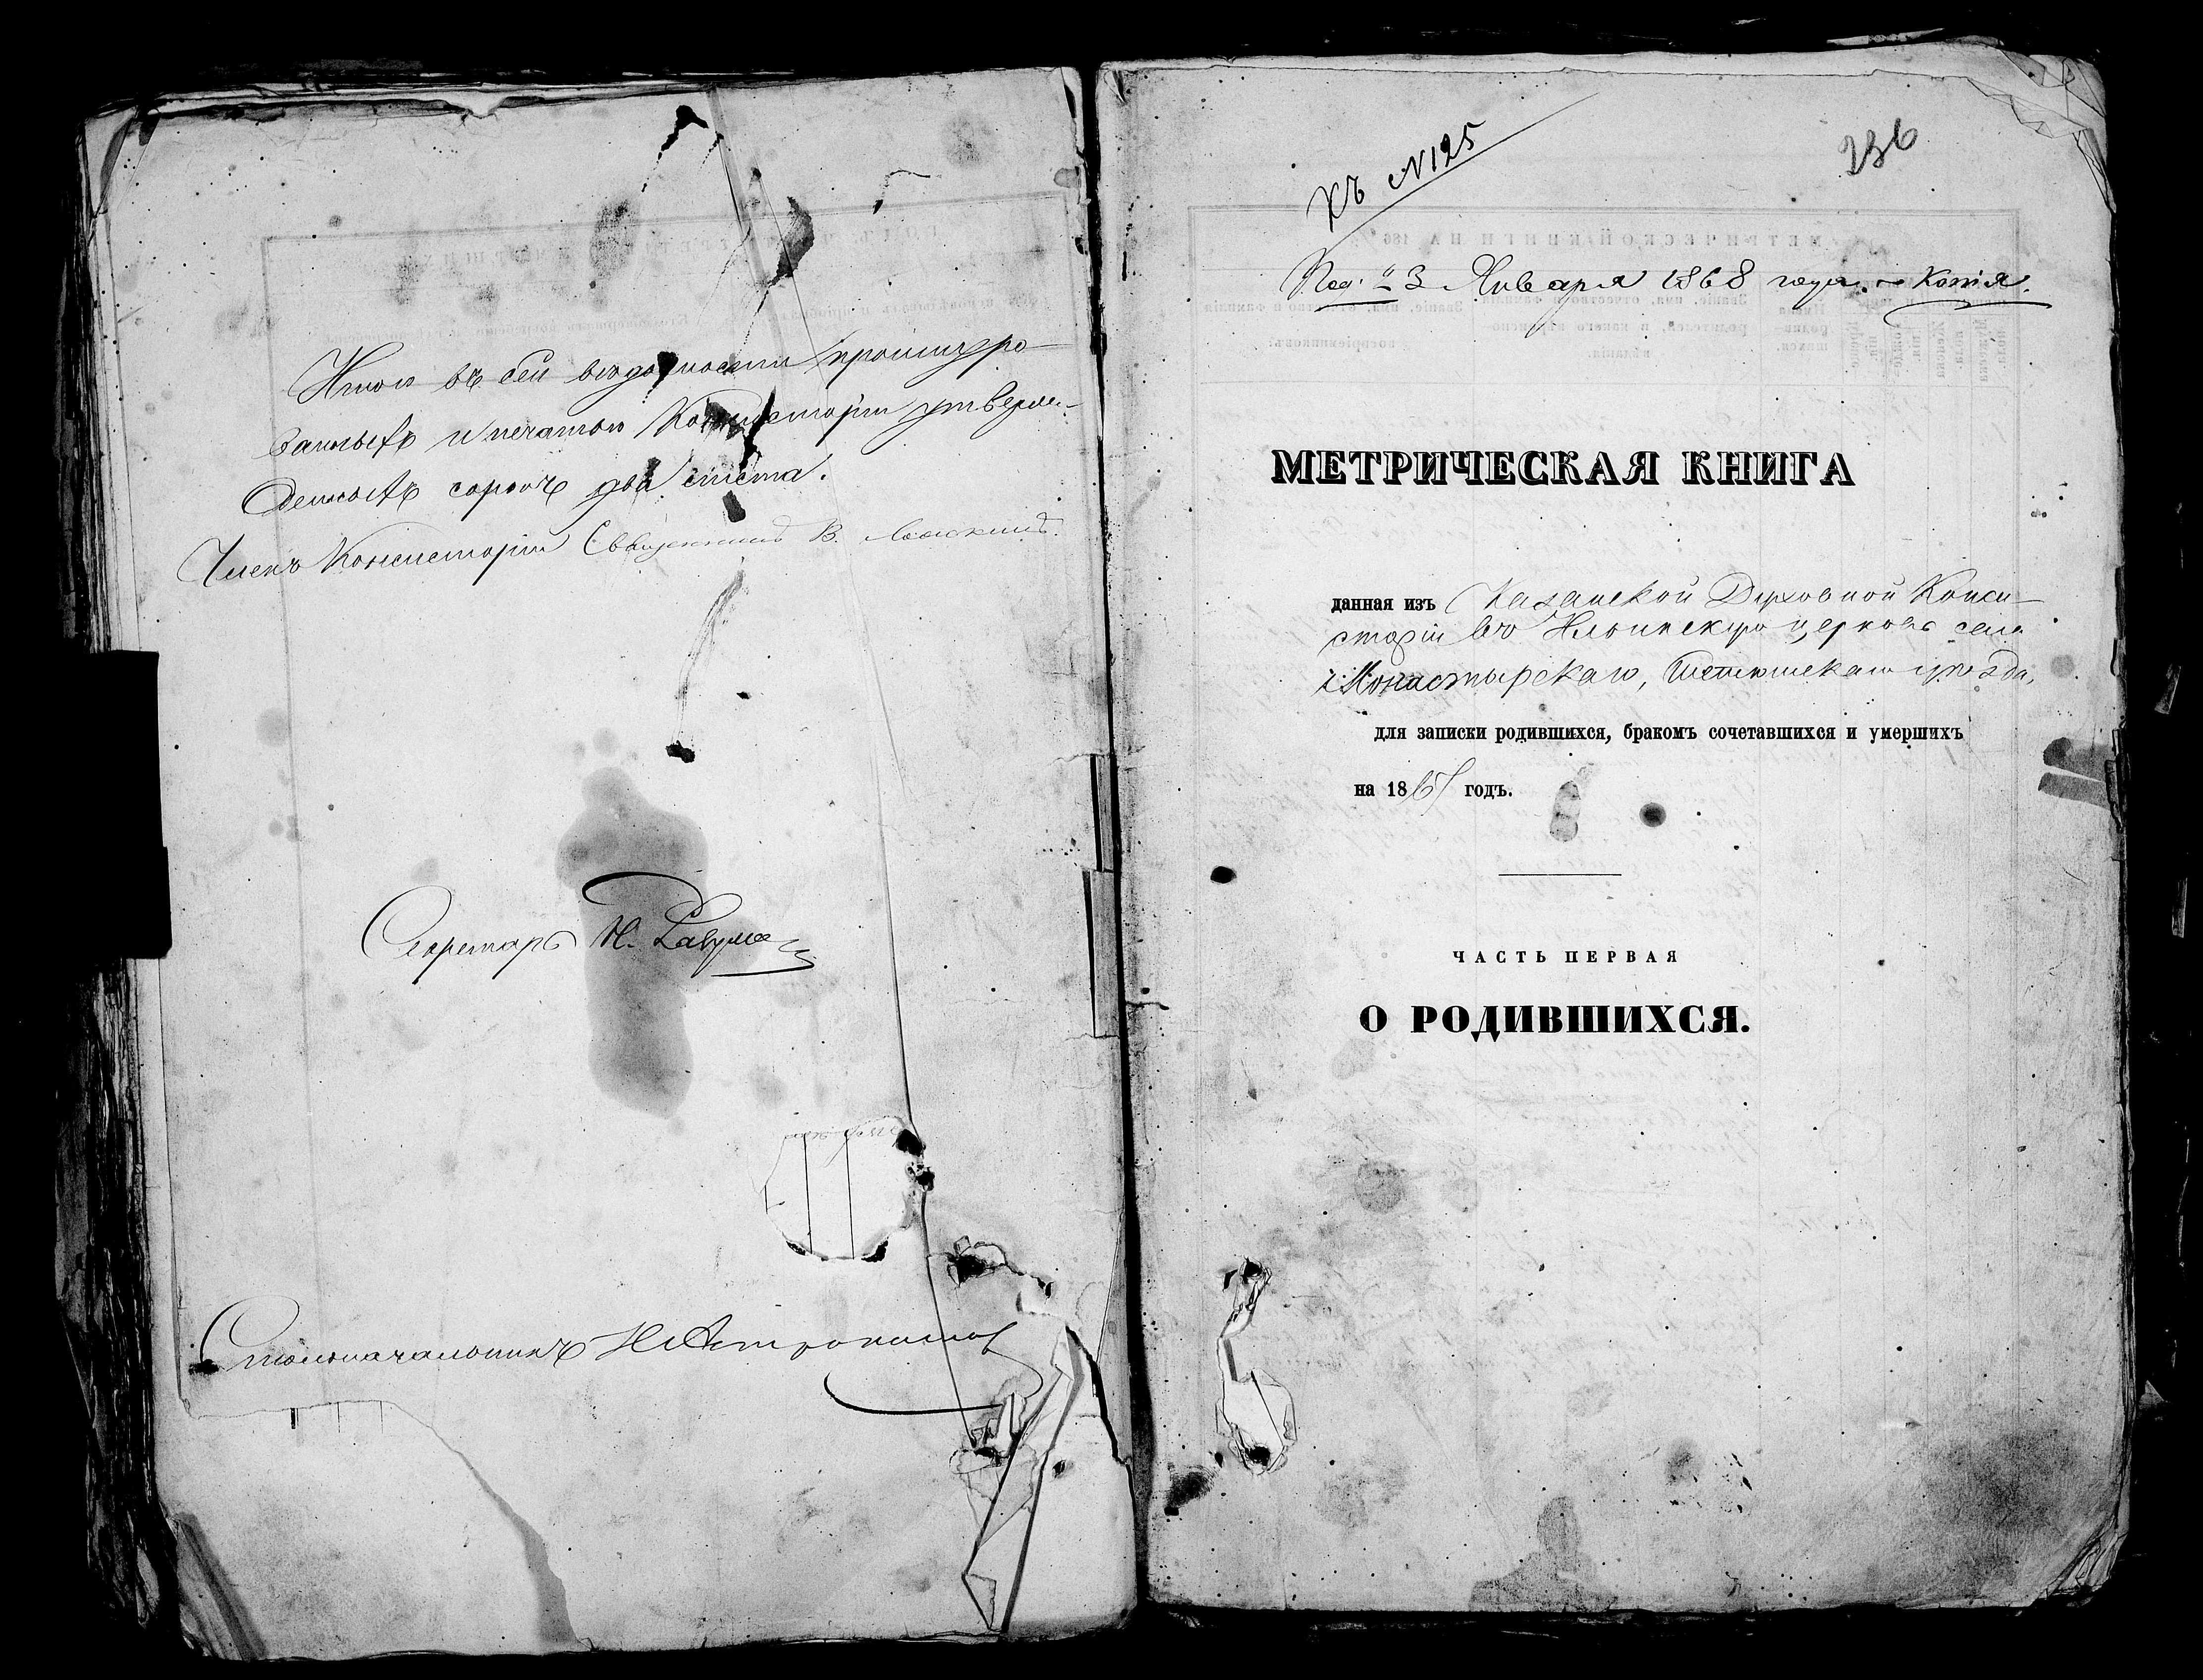 Итого въ сей ведомости прошнуро-
ванныхъ и печатью Консисторіи утверж-
денныхъ сорокъ два листа.
Членъ Консисторіи Священникъ В.
Секретарь Н.
Столоначальникъ Н
Къ №125
236
Под. 3 Января 1868 года. Копія.
МЕТРИЧЕСКАЯ КНИГА
данная изъ Казанской Духовной Конси-
сторіи въ Ильинскую церковь села
Монастырскаго, Тетюшскаго уѣзда,
для записки родившихся, бракомъ сочетавшихся и умершихъ
на 1867 годъ.
ЧАСТЬ ПЕРВАЯ
О РОДИВШИХСЯ.